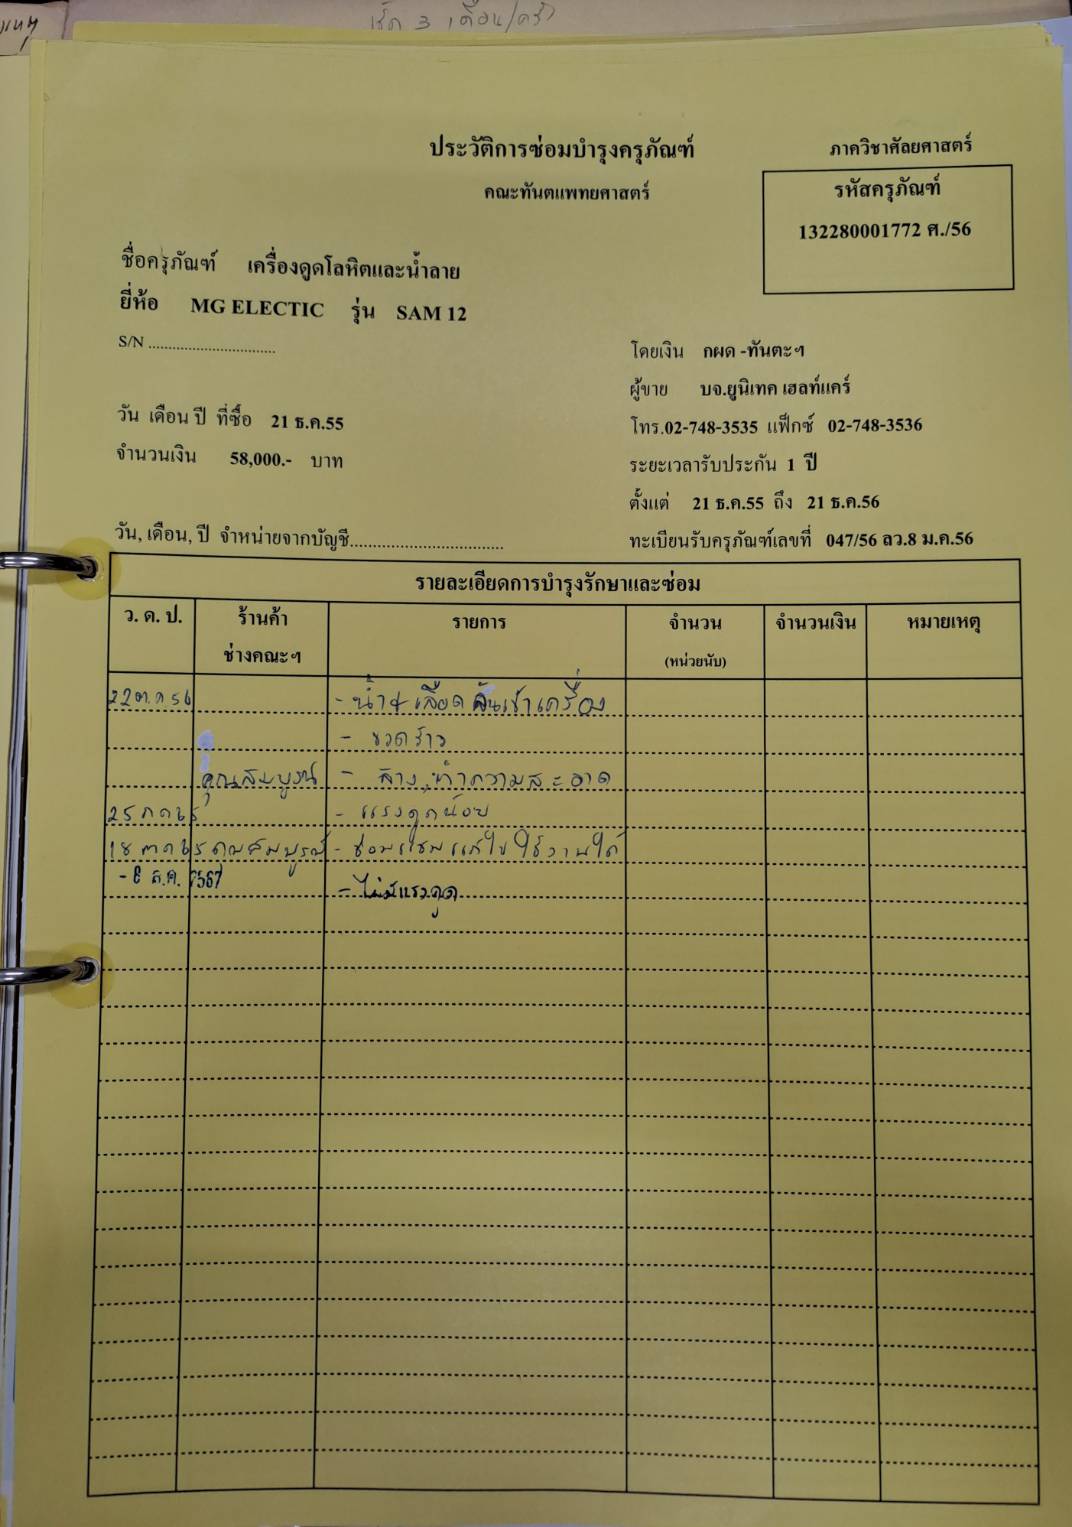 เช็ค 3 เดือน/ครั้ง
ประวัติการซ่อมบำรุงครุภัณฑ์
ภาควิชาศัลยศาสตร์
คณะทันตแพทยศาสตร์
รหัสครุภัณฑ์
132280001772 ศ./56
ชื่อครุภัณฑ์ เครื่องดูดโลหิตและน้ำลาย
ยี่ห้อ MG ELECTIC รุ่น SAM 12
S/N ................................
โดยเงิน กผด -ทันตะฯ
ผู้ขาย บจ.ยูนิเทค เฮลท์แคร์
วัน เดือน ปี ที่ซื้อ 21 ธ.ค.55
โทร.02-748-3535 แฟ็กซ์ 02-748-3536
จำนวนเงิน 58,000.- บาท
ระยะเวลารับประกัน 1 ปี
ตั้งแต่ 21 ธ.ค.55 ถึง 21 ธ.ค.56
วัน, เดือน, ปี จำหน่ายจากบัญชี...................................
ทะเบียนรับครุภัณฑ์เลขที่ 047/56 ลว.8 ม.ค.56
รายละเอียดการบำรุงรักษาและซ่อม
ว. ด. ป. ร้านค้า รายการ จำนวน จำนวนเงิน หมายเหตุ
ช่างคณะฯ (หน่วยนับ)
22 ต.ค 56 - น้ำ + เลือด ล้นเข้าเครื่อง
- ขวดร้าว
คุณสมบูรณ์ - ล้าง, ทำความสะอาด
25 ภค 65 - แรงดูดน้อย
18 ตค 65 คุณสมบูรณ์ - ซ่อมแซมแก้ไข ใช้งานได้
- 6 ส.ค. 2567 - ไม่มีแรงดูด